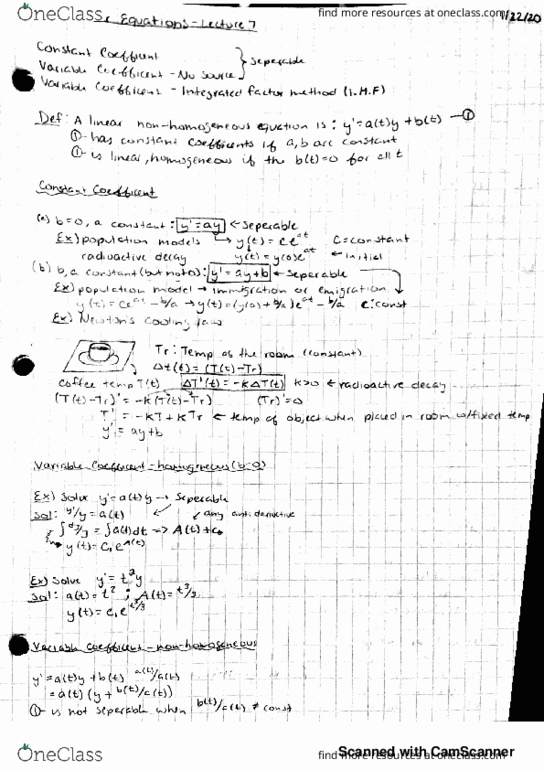 OneClass
find more resources at oneclass.com
11/22/20
Equations - Lecture 7
Constant Coefficient
Variable Coefficient - No Source
} Seperable
Variable Coefficient - Integrated factor method (I.M.F)
Def: A linear non-homogeneous equation is: y'=a(t)y + b(t) —①
① - has constant coefficients if a,b are constant
① - is linear, homogeneous if the b(t)=0 for all t
Constant Coefficient
(a) b=0, a constant: y'=ay ← Seperable
Ex) population models → y(t) = ce^at C=constant
radioactive decay y(t) = y(0)e^at ← initial
(b) b, a constant (but not 0): y'=ay+b ← Seperable
Ex) population model → immigration or emigration.
y(t) = ce^at - b/a → y(t) = (y(0) + b/a)e^at - b/a c:const
Ex) Newton's cooling law
Tr: Temp of the room (constant)
Δt(t) = (T(t)-Tr)
coffee temp T(t) ΔT'(t) = -kΔT(t) k>0 ← radioactive decay
(T(t)-Tr)' = -k(T(t)-Tr) (Tr)'=0
T' = -kT + kTr ← temp of object when placed in room w/fixed temp
y' = ay+b
Variable coefficient - homogeneous (b=0)
Ex) Solve y'=a(t)y → Seperable
Sol: y'/y = a(t) any antiderivative
∫dy/y = ∫a(t)dt => A(t) + c₀
y(t) = c₁e^A(t)
Ex) Solve y'=t²y
Sol: a(t)=t² ; A(t)= t³/3
y(t) = c₁e^t³/3
Variable coefficient - non-homogeneous
y' = a(t)y + b(t) a(t)/a(t)
= a(t) (y + b(t)/a(t))
① - is not seperable when b(t)/a(t) ≠ const
OneClass
find more resources at oneclass.com
Scanned with CamScanner